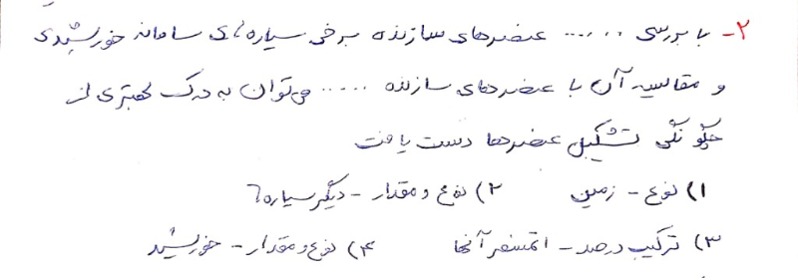 ۲- با بررسی ..... عنصرهای سازنده برخی سیاره‌های سامانه خورشیدی
و مقایسه آن با عنصرهای سازنده ..... می‌توان به درک بهتری از
چگونگی تشکیل عنصرها دست یافت
۱) نوع - زمین ۲) نوع و مقدار - دیگر سیاره‌ها
۳) ترکیب درصد - اتمسفر آنها ۴) نوع و مقدار - خورشید